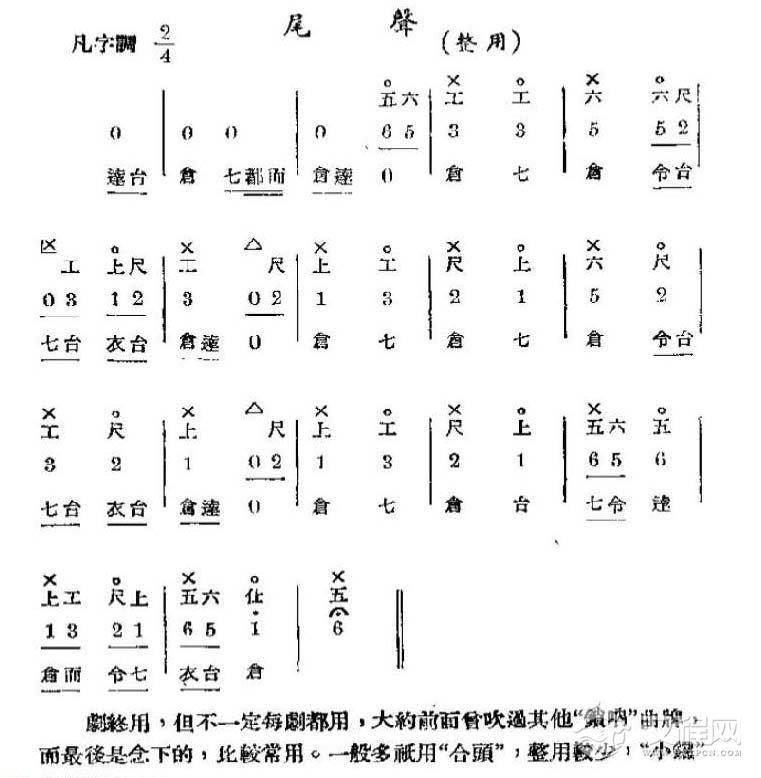 尾聲
凡字調 2/4 (整用)
× o × o × o
五六 工 工 六 六尺
0 | 0 0 | 0 65 | 3 3 | 5 52 |
薘台 倉 七都而 倉薘 0 倉 七 倉 令台
× o × △ × o × o × o
工 上尺 工 尺 上 工 尺 上 六 尺
03 12 | 3 02 | 1 3 | 2 1 | 5 2 |
七台 衣台 倉薘 0 倉 七 倉 七 倉 令台
× o × △ × o × o × o
工 尺 上 尺 上 工 尺 上 五六 五
3 2 | 1 02 | 1 3 | 2 1 | 65 6 |
七台 衣台 倉薘 0 倉 七 倉 台 七令 薘
× o × o ×
上工 尺上 五六 仩 五
13 21 | 65 1 | 6 ‖
倉而 令七 衣台 倉
劇終用,但不一定每劇都用,大約前面曾吹過其他“鎖吶”曲牌,
而最後是念下的,比較常用。一般多祇用“合頭”,整用較少,“小鑼”